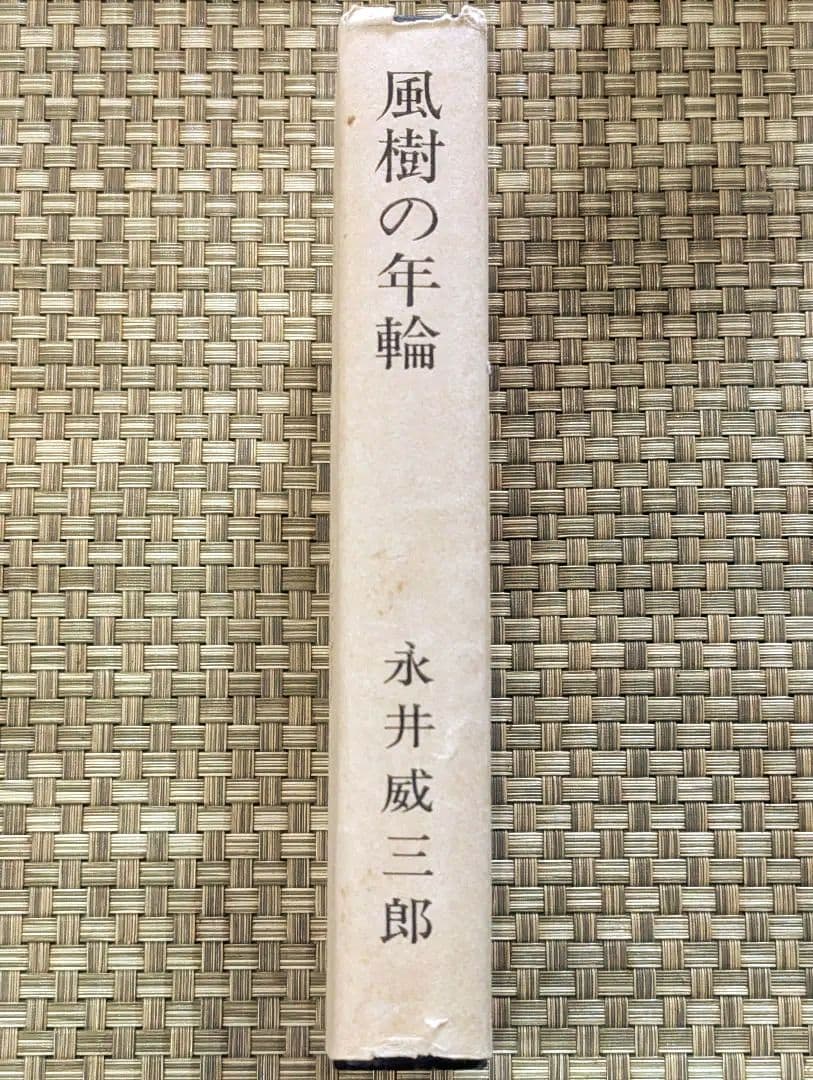 風樹の年輪
永井威三郎